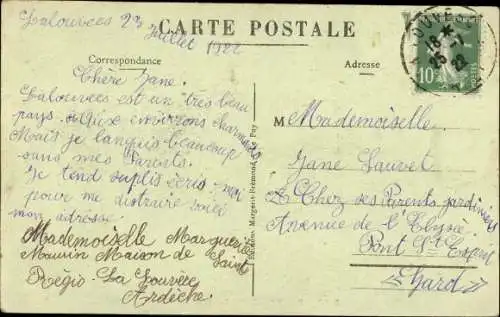 Lalouvecs 23 Juillet 1922
CARTE POSTALE
Correspondance
Adresse
Chère Jane.
Lalouvecs est un très beau
pays. aux environs charmants
Mais je languis beaucoup
sans mes Parents.
Je tend suplis écris-moi
pour me distraire voici
mon adresse.
Mademoiselle Marguerite
Mauvin Maison de Saint
Régis-La Louvecs
Ardèche
M Mademoiselle
Jane Sauvet
Chez ses Parents jardiniers
Avenue de l'Elysée
Pont St Esprit
Gard
10
18
25
22